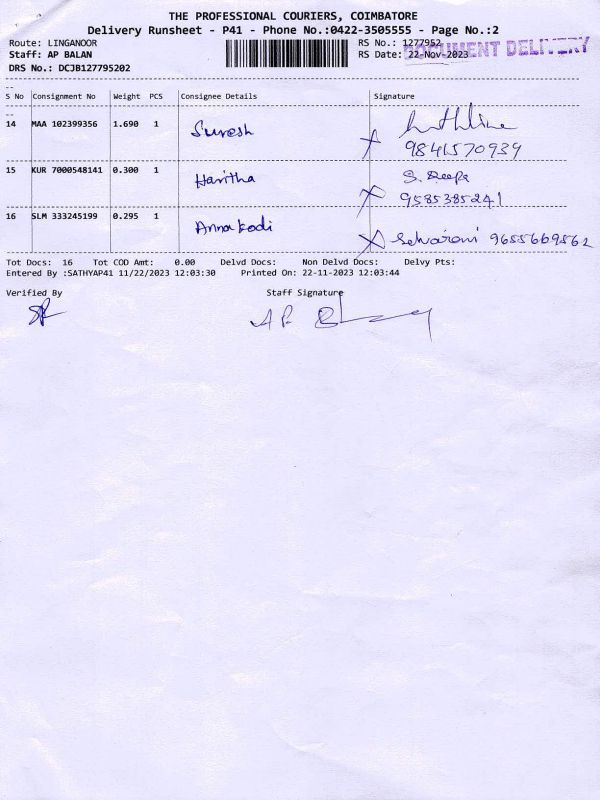 THE PROFESSIONAL COURIERS, COIMBATORE
Delivery Runsheet - P41 - Phone No.:0422-3505555 - Page No.:2
Route: LINGANOOR
RS No.: 1277952
DOCUMENT DELIVERY
Staff: AP BALAN
RS Date: 22-Nov-2023
DRS No.: DCJB127795202
S No Consignment No Weight PCS Consignee Details Signature
14 MAA 102399356 1.690 1 Suresh
9841570939
15 KUR 7000548141 0.300 1 Haritha S. Deepa
9585385241
16 SLM 333245199 0.295 1 Annakodi Selvarani 9655669562
Tot Docs: 16 Tot COD Amt: 0.00 Delvd Docs: Non Delvd Docs: Delvy Pts:
Entered By :SATHYAP41 11/22/2023 12:03:30 Printed On: 22-11-2023 12:03:44
Verified By Staff Signature